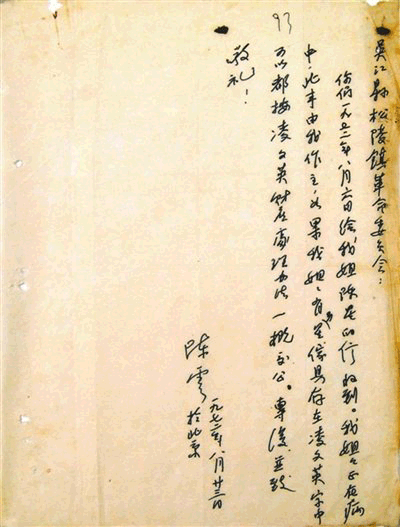 吴江县松陵镇革命委员会：
你们一九七二年八月六日给我姐陈星的信收到。我姐々正在病
中，此事由我作主，如果我姐々有些傢具存在凌文英家中
可以都按凌文英财产处理办法一概交公。专复並致
敬礼！
一九七二年八月廿三日
陈云 于北京